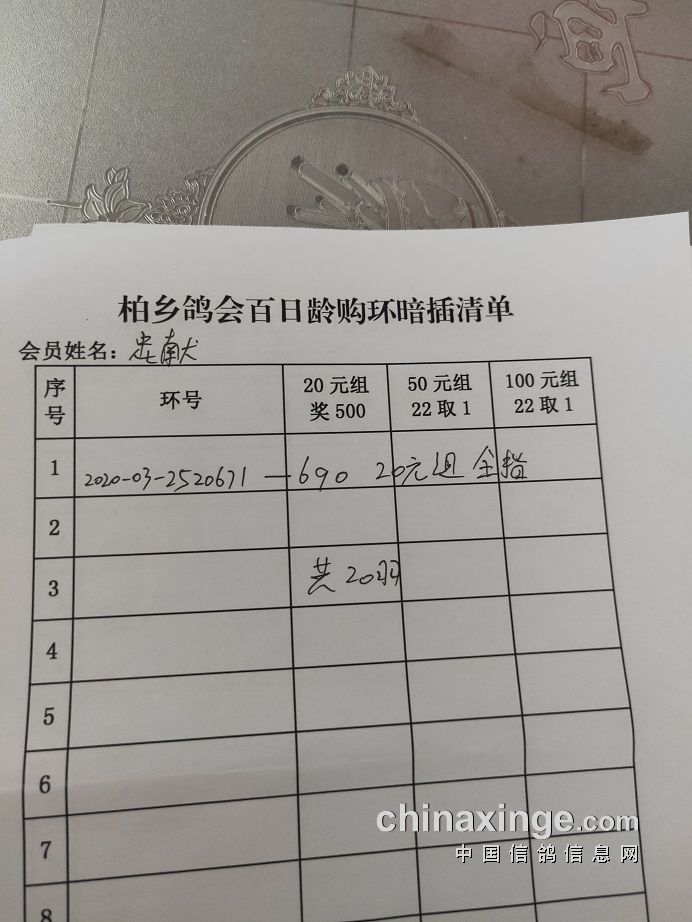 柏乡鸽会百日龄购环暗插清单
会员姓名：
序号 环号 20元组 奖500 50元组 22取1 100元组 22取1
1 2020-03-2520671—690 20元组 全指
2
3 共20羽
4
5
6
7
8
chinaxinge.com
中国信鸽信息网